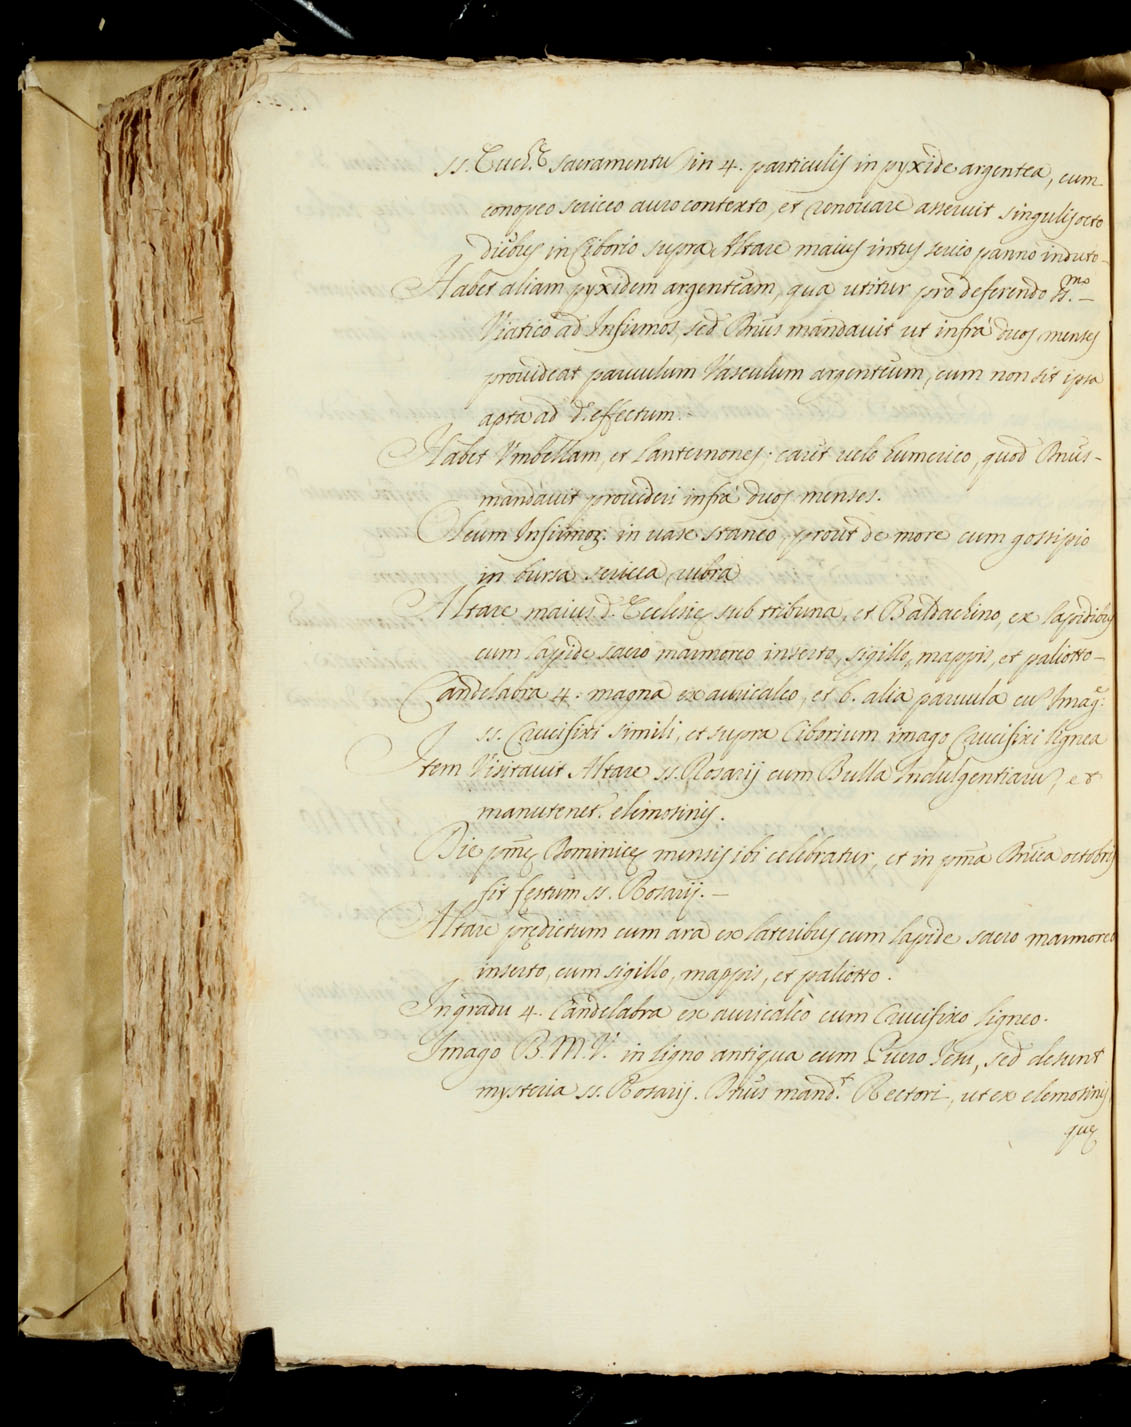 ss. Euch.ę sacramentũ in 4. particulis in pyxide argentea, cum
conopeo sericeo auro contexto, et renovare asseruit singulis octo
diebus in Ciborio supra Altare maius intus serico panno induto-
Habet aliam pyxidem argenteam, qua utitur pro deferendo ss.mo -
Viatico ad Infirmos, sed Dnus mandavit ut infrà duos menses
provideat parvulum Vasculum argenteum, cum non sit ipsa
apta ad d. effectum. -
Habet Vmbellam, et lanternones; caret velo humerico, quod Dnus -
mandavit provideri infrà duos menses.
Oleum Infirmoꝝ. in vase staneo, prout de more cum gossipio
in bursa sericea rubra
Altare maius d. Ecclesię sub tribuna, et Baldachino, ex lapidibus
cum lapide sacro marmoreo inserto, sigillo, mappis, et paliotto -
Candelabra 4. magna ex auricalco, et 6. alia parvula cũ Imagẽ.
ss. Crucifixi simili, et supra Ciborium imago Crucifixi lignea
Item Visitavit Altare ss. Rosarij cum Bulla Indulgentiarũ, et
manutenet. elimosinis.
Die pmę Dominicę mensis ibi celebratur, et in pma Dnica octobris
fit festum ss. Rosarij. -
Altare prędictum cum ara ex lateribus cum lapide sacro marmoreo
inserto, cum sigillo, mappis, et paliotto.
In gradu 4. Candelabra ex auricalco cum Crucifixo ligneo.
Imago B. M. V. in ligno antiqua cum Puero Iesu, sed desunt
mysteria ss. Rosarij. Dnus mand.t Rectori, ut ex elemosinis,
quę